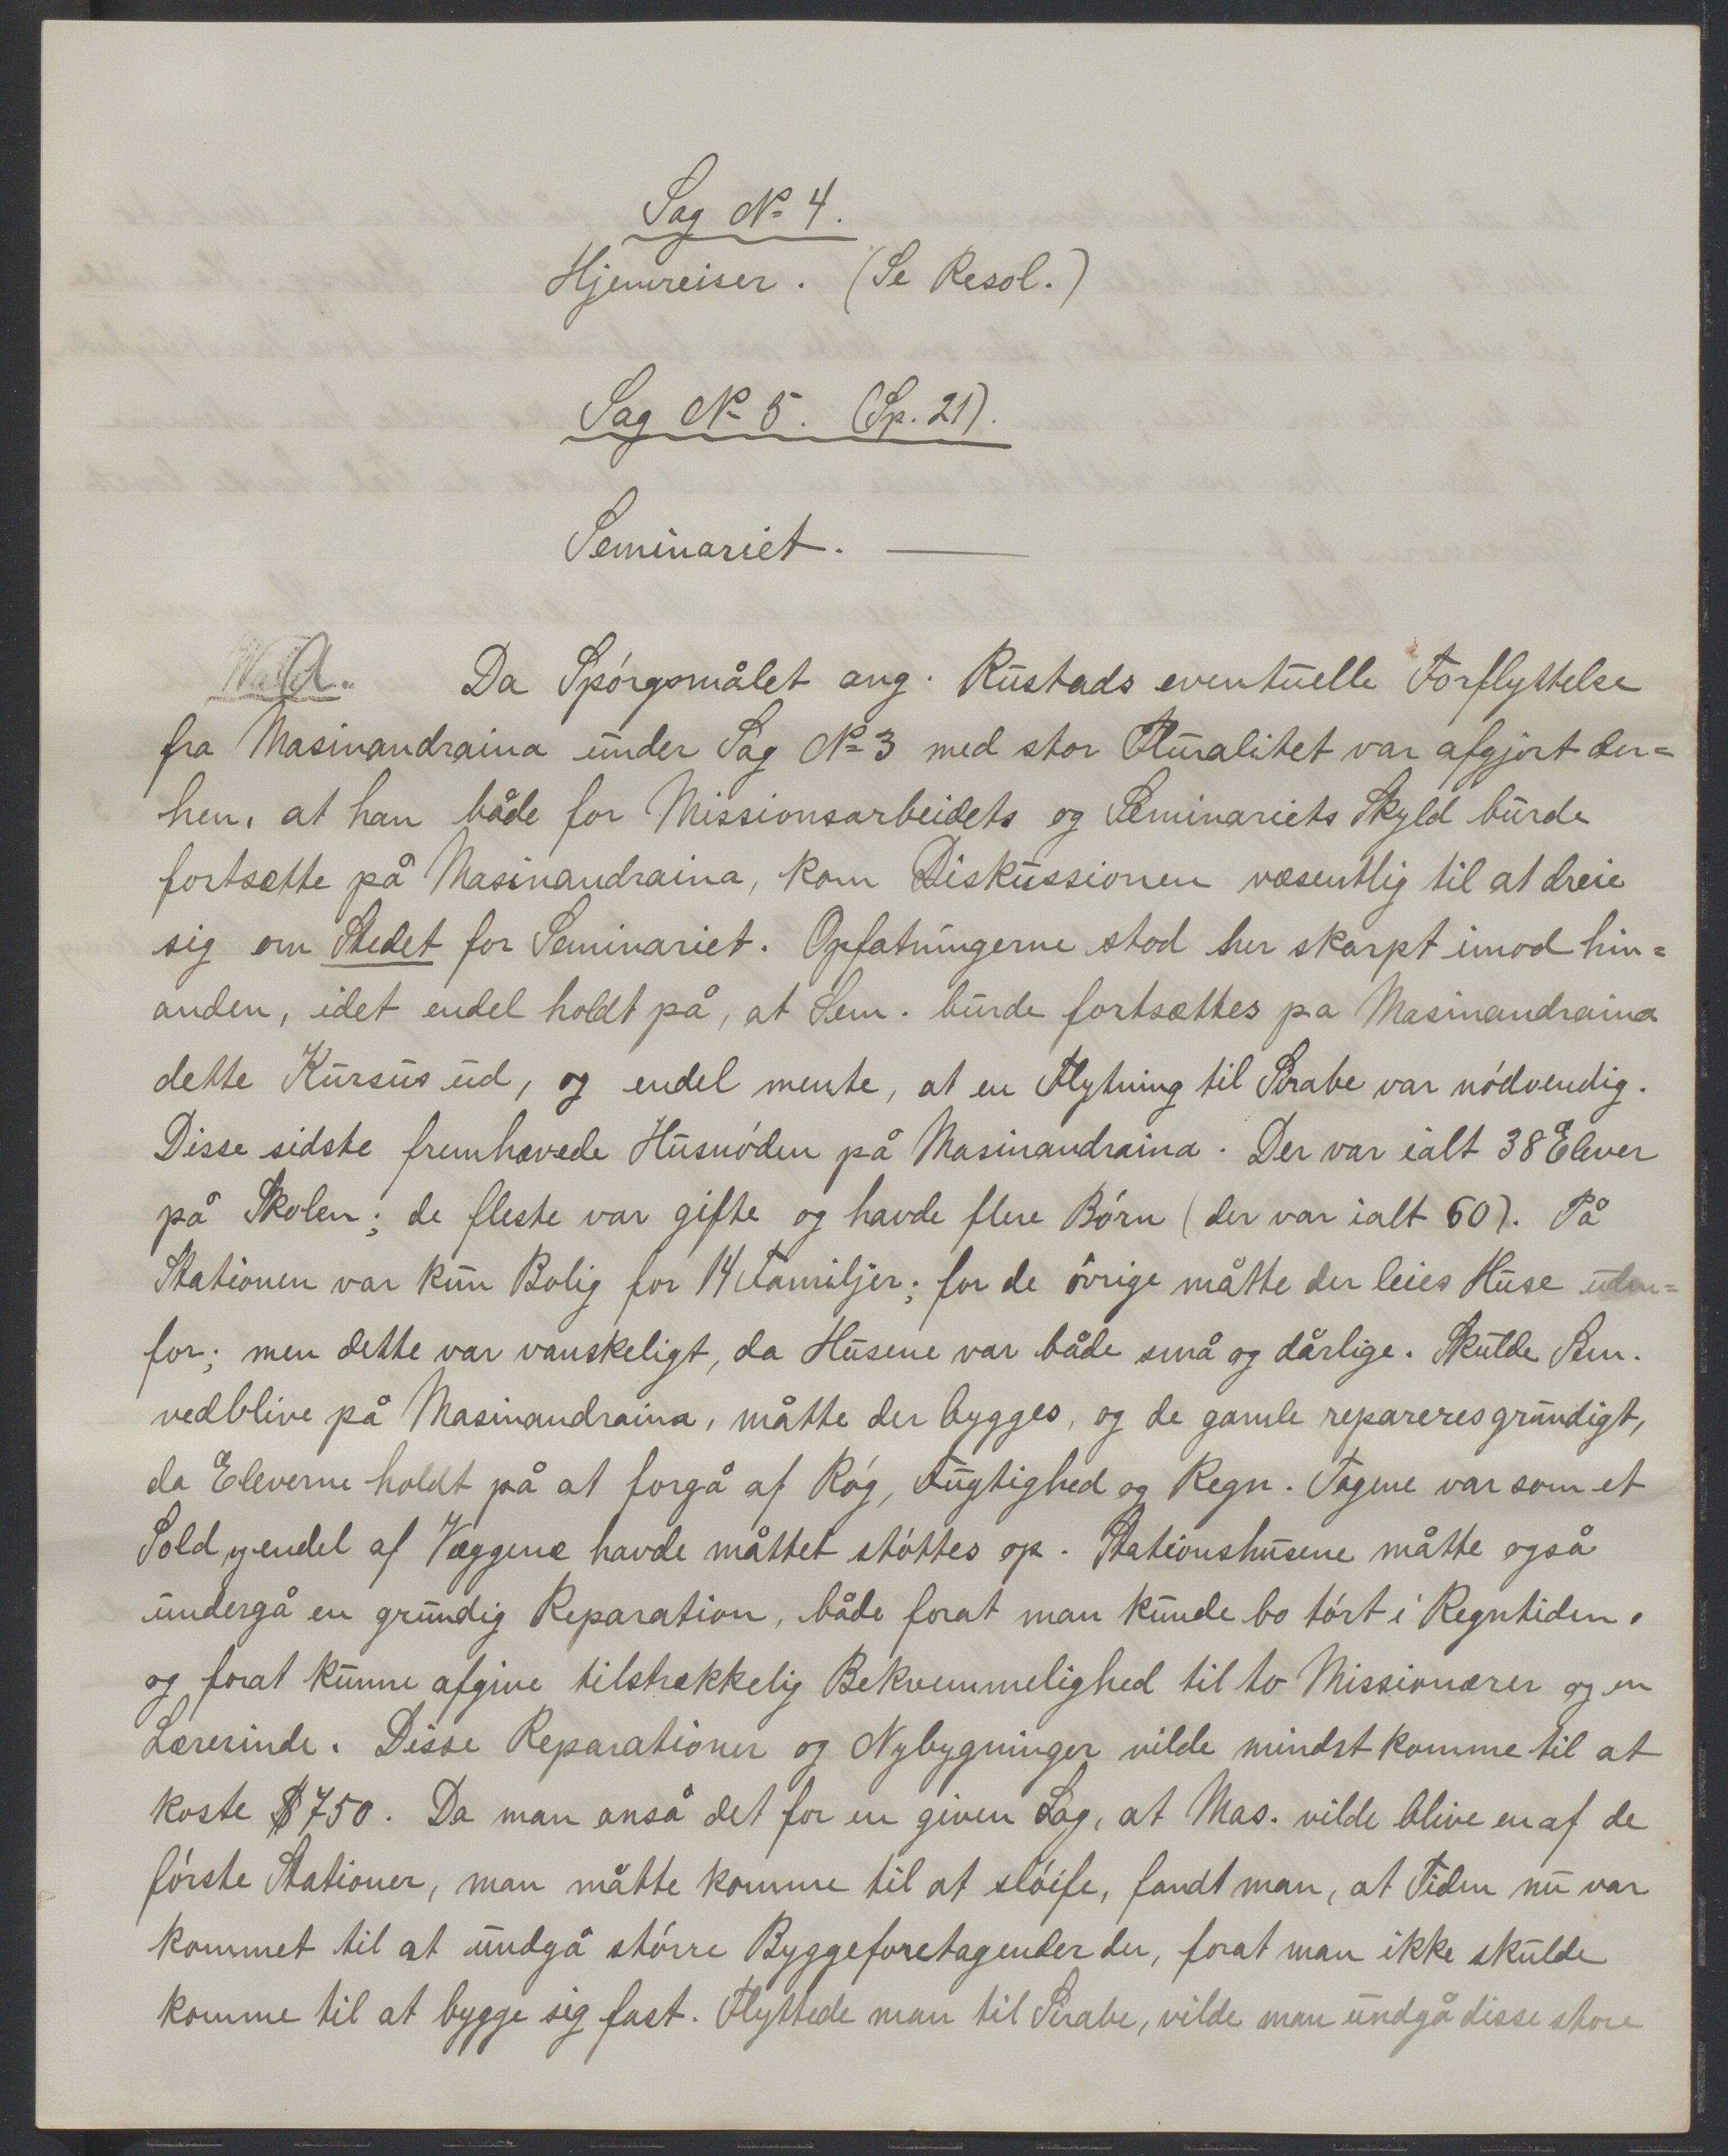 Sag No 4.
Hjemreiser. (Se Resol.)
Sag No 5. (Sp. 21).
Seminariet. —
Da Spórgsmålet ang. Rustads eventuelle Forflyttelse
fra Masinandraina under Sag No 3 med stor Pluralitet var afgjort der=
hen, at han både for Missionsarbeidets og Seminariets Skyld burde
fortsætte på Masinandraina, kom Diskussionen væsentlig til at dreie
sig om Stedet for Seminariet. Opfatningerne stod her skarpt imod hin=
anden, idet endel holdt på, at Sem. burde fortsættes pa Masinandraina
dette Kursus ud, og endel mente, at en Flytning til Sirabe var nódvendig.
Disse sidste fremhævede Husnóden på Masinandraina. Der var ialt 38 Elever
på Skolen; de fleste var gifte og havde flere Bórn (der var ialt 60). På
Stationen var kun Bolig for 14 Familjer; for de óvrige måtte der leies Huse uden=
for; men dette var vanskeligt, da Husene var både små og dårlige. Skulde Sem.
vedblive på Masinandraina, måtte der bygges, og de gamle repareres grundigt,
da Eleverne holdt på at forgå af Róg, Fugtighed og Regn. Tagene var som et
Sold, og endel af Væggene havde måttet stóttes op. Stationshusene måtte også
undergå en grundig Reparation, både forat man kunde bo tórt i Regntiden,
og forat kunne afgive tilstrækkelig Bekvemmelighed til to Missionærer og en
Lærerinde. Disse Reparationer og Nybygninger vilde mindst komme til at
koste $750. Da man anså det for en given Sag, at Mas. vilde blive en af de
fórste Stationer, man måtte komme til at slóife, fandt man, at Tiden nu var
kommet til at undgå stórre Byggeforetagender der, forat man ikke skulde
komme til at bygge sig fast. Flyttede man til Sirabe, vilde man undgå disse store